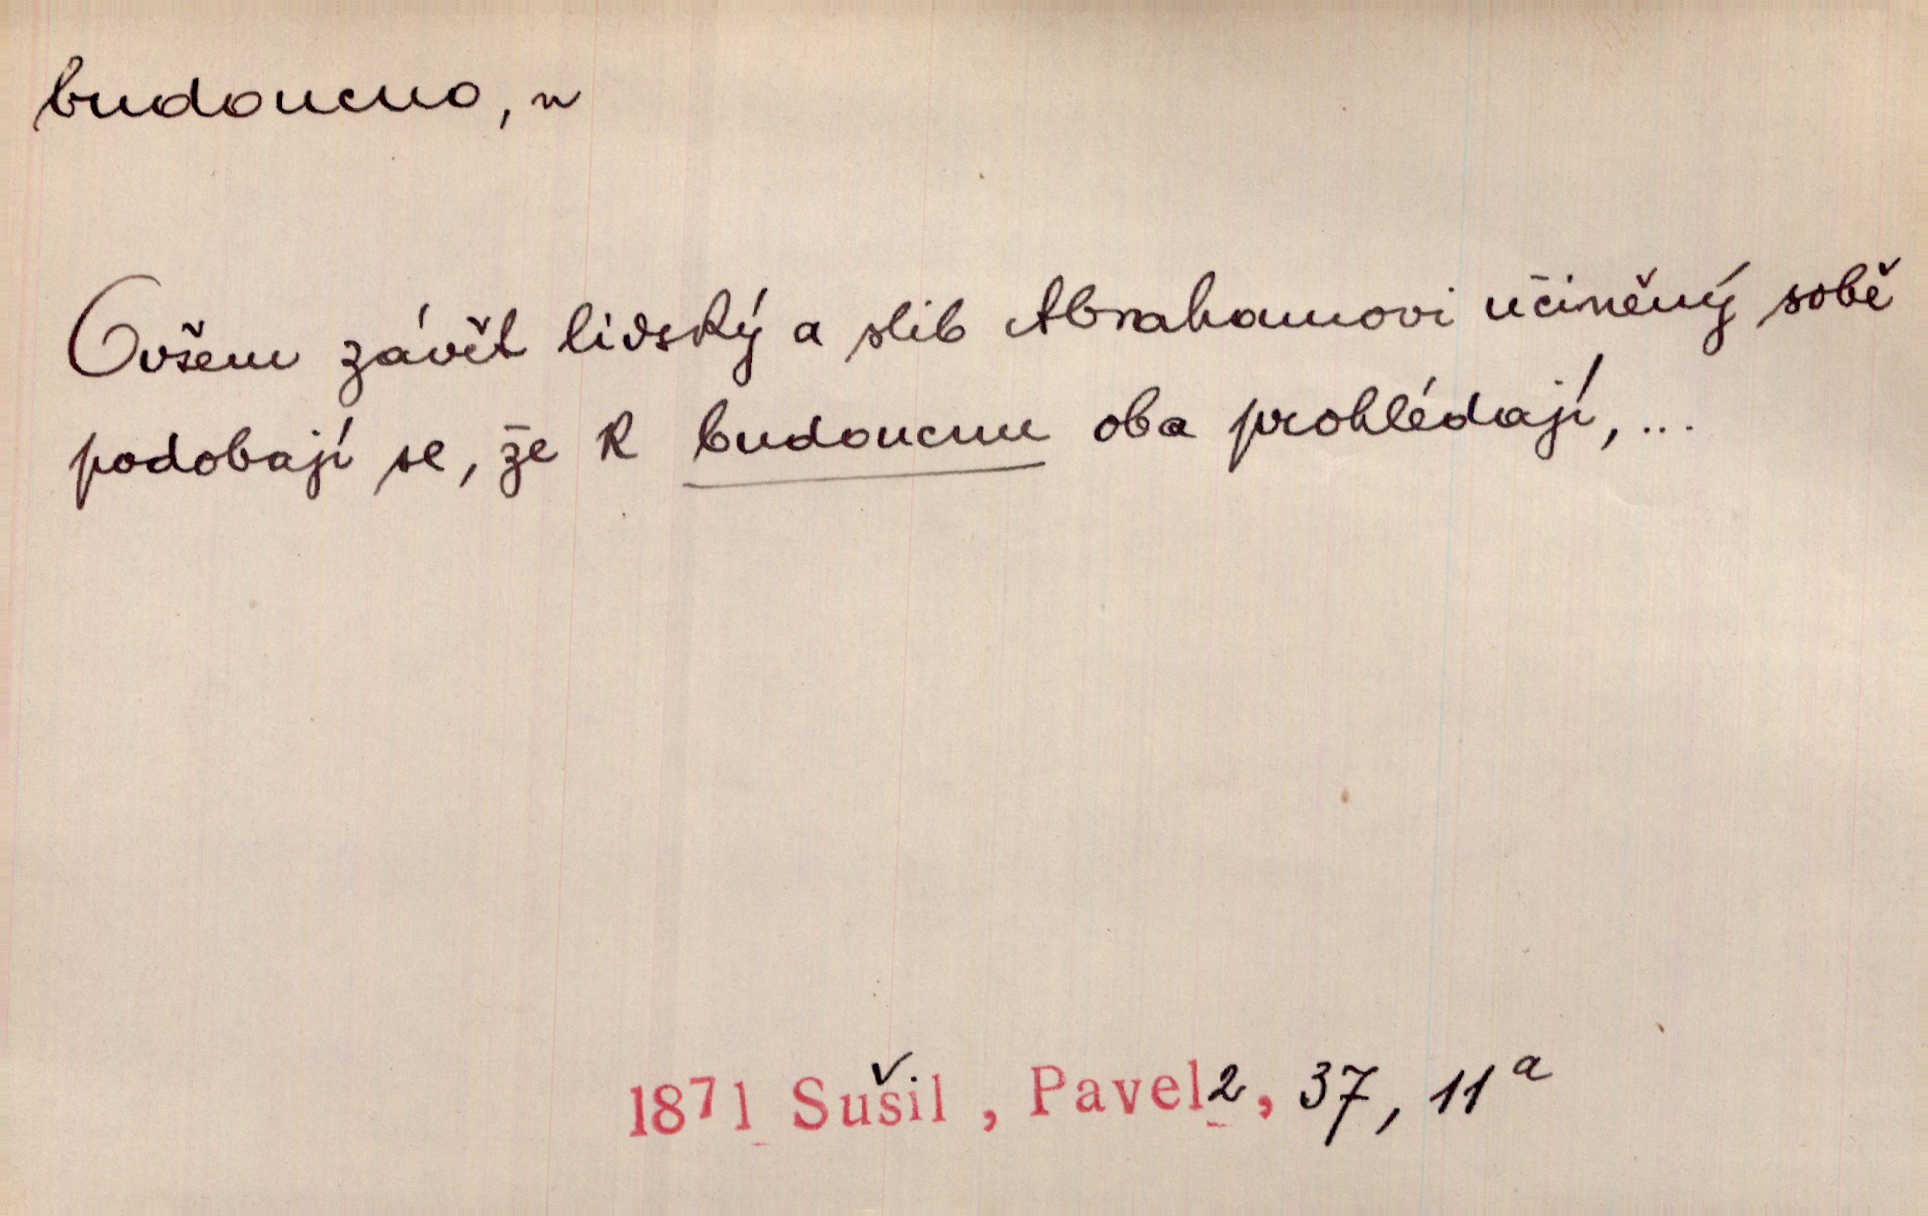 budoucno, n
Ovšem závět lidský a slib Abrahamovi učiněný sobě
podobají se, že k budoucnu oba prohlédají, ...
1871 Sušil, Pavel 2, 37, 11a